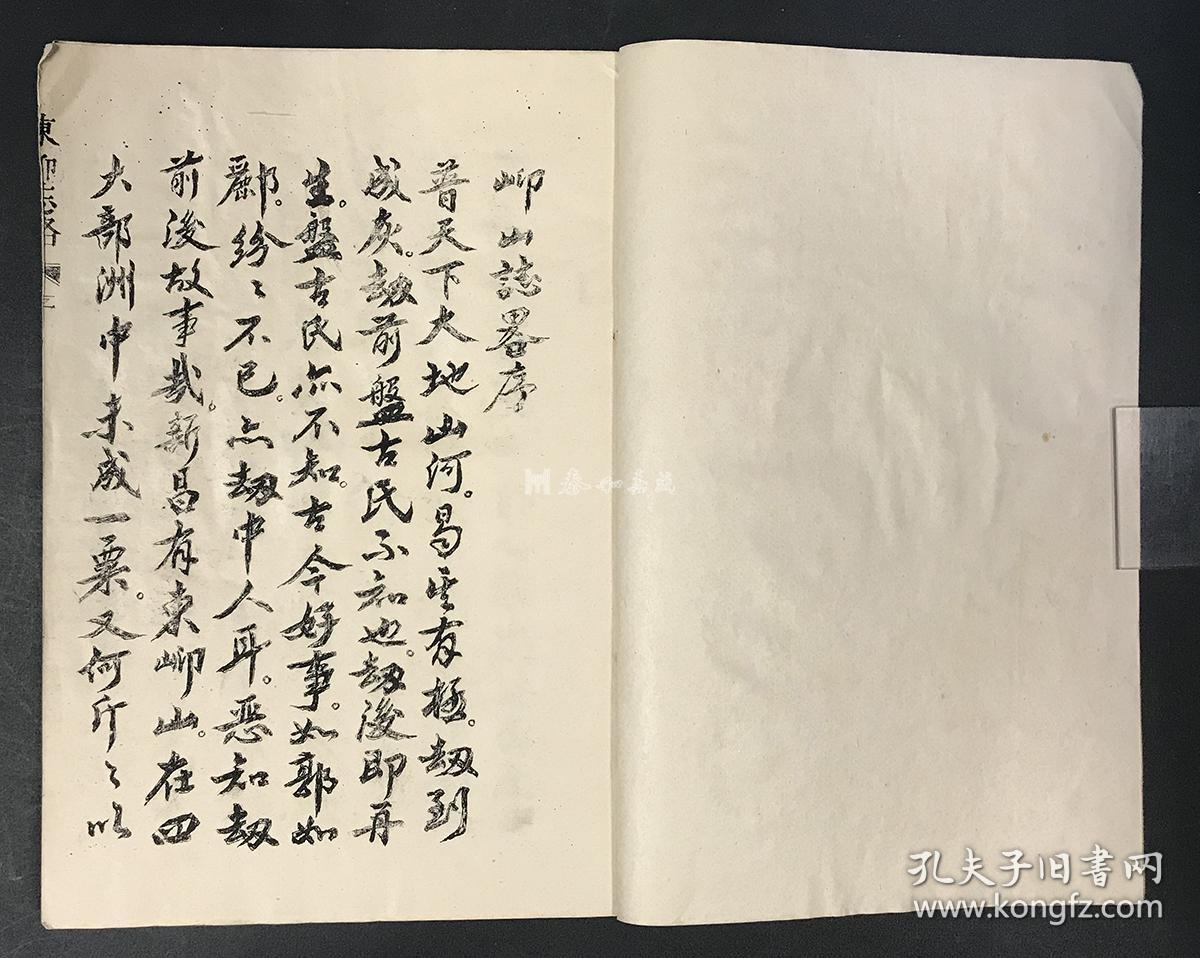 岬山誌畧序
普天下大地山河。曷嘗有極。劫到
成灰。劫前盤古氏不知也。劫後即再
生。盤古氏亦不知。古今好事。如郭如
酈。紛〻不已。亦劫中人耳。惡知劫
前後故事哉。新昌有東岬山。在四
大部洲中。未成一粟。又何斤〻以
東岬志畧
秦如嘉盛
孔夫子旧书网
www.kongfz.com